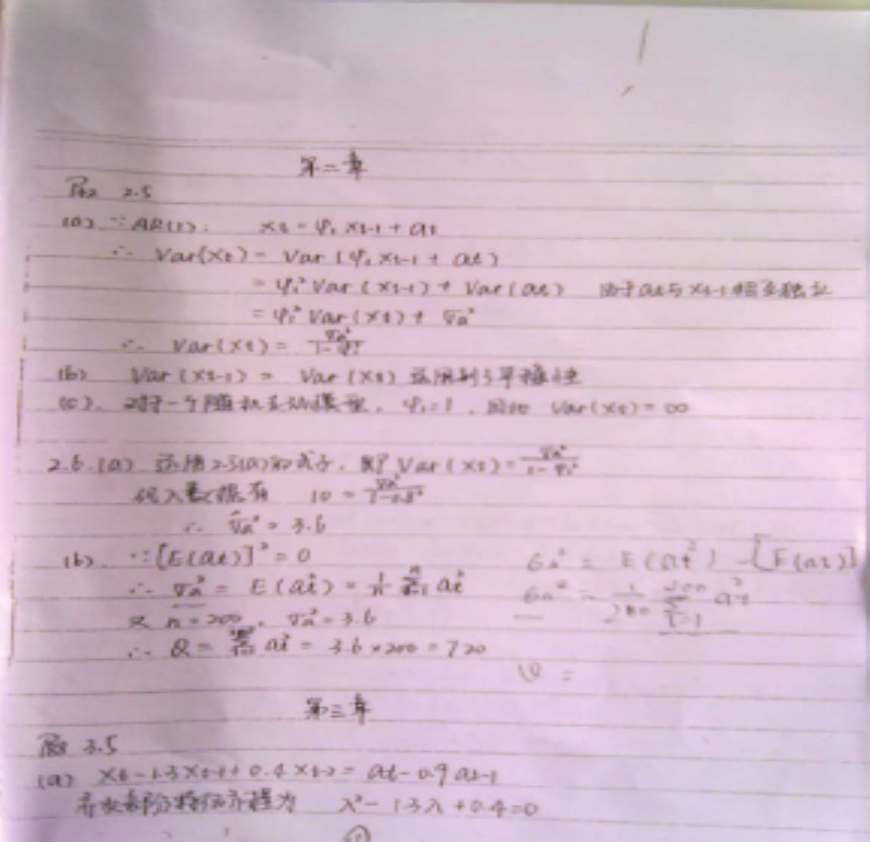 第二章
P42 2.5
(a) ∵ AR(1): Xt = φ1 Xt-1 + at
∴ Var(Xt) = Var (φ1 Xt-1 + at)
= φ1² Var (Xt-1) + Var(at) 由于at与Xt-1相互独立
= φ1² Var(Xt) + σa²
∴ Var(Xt) = σa²/(1-φ1²)
(b) Var (Xt-1) = Var (Xt) 运用到了平稳性
(c). 对于一个随机游动模型, φ1=1, 因此 Var(Xt) = ∞
2.6.(a) 运用2.5(a)的式子, 即 Var (Xt) = σa²/(1-φ1²)
代入数据有 10 = σa²/(1-0.8²)
∴ σa² = 3.6
(b) ∵ [E(at)]² = 0 σa² = E(at²) - [E(at)]
∴ σa² = E(at²) = 1/n Σ at² σa² = 1/200 Σ(t=1→200) at²
又 n=200, σa²=3.6
∴ Q = Σ at² = 3.6×200 = 720 Q =
第三章
3.5
(a) Xt - 1.3Xt-1 + 0.4Xt-2 = at - 0.9at-1
齐次部分特征方程为 λ² - 1.3λ + 0.4 = 0